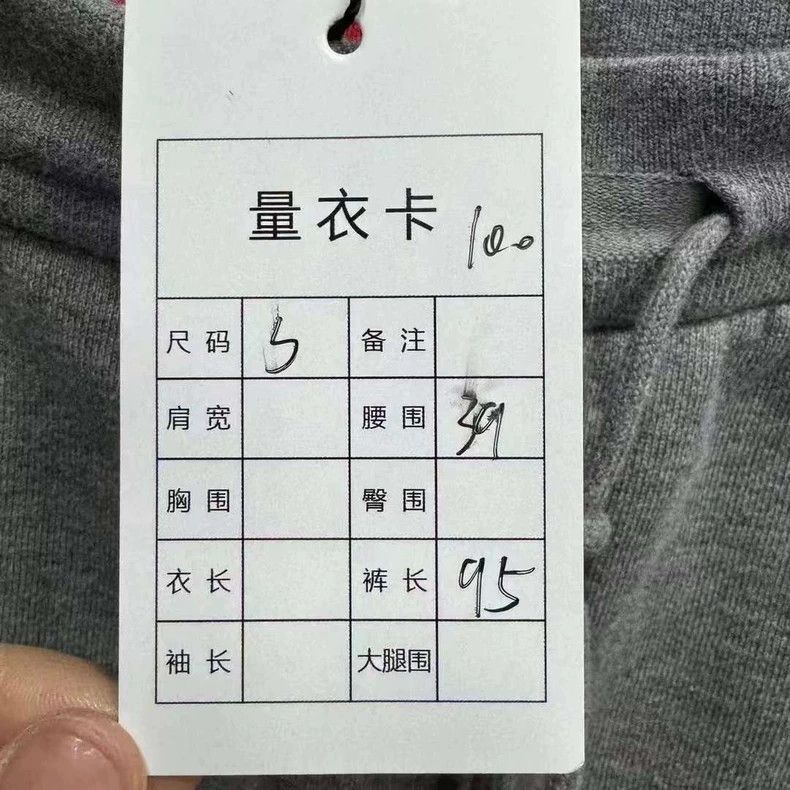 量衣卡 100
尺码 S 备注
肩宽 腰围 39
胸围 臀围
衣长 裤长 95
袖长 大腿围